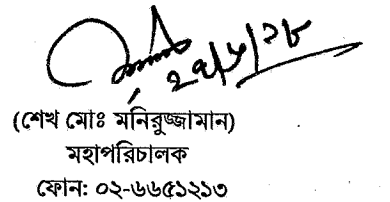 (শেখ মোঃ মনিরুজ্জামান)
মহাপরিচালক
ফোন: ০২-৬৬৫১২১৩